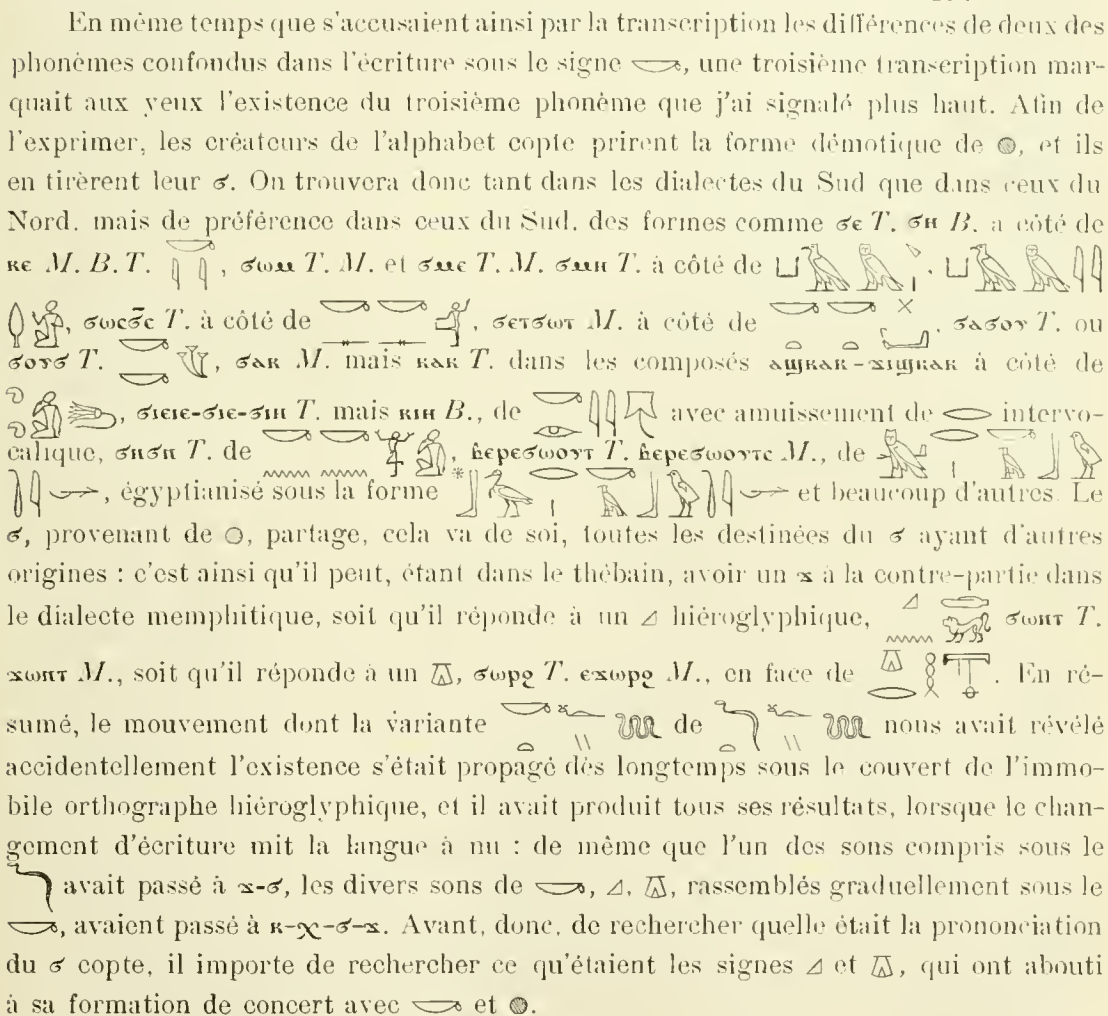 En même temps que s'accusaient ainsi par la transcription les différences de deux des
phonèmes confondus dans l'écriture sous le signe 𓎡, une troisième transcription mar-
quait aux yeux l'existence du troisième phonème que j'ai signalé plus haut. Afin de
l'exprimer, les créateurs de l'alphabet copte prirent la forme démotique de 𓐍, et ils
en tirèrent leur ϭ. On trouvera donc tant dans les dialectes du Sud que dans ceux du
Nord, mais de préférence dans ceux du Sud, des formes comme ϭⲉ T. ϭⲏ B. a côté de
ⲕⲉ M. B. T. 𓎡𓇋𓇋, ϭⲱⲙ T. M. et ϭⲙⲉ T. M. ϭⲙⲏ T. à côté de
ϭⲱⲥϭ̄ⲥ T. à côté de , ϭⲉⲧϭⲱⲧ M. à côté de , ϭⲁϭⲟⲩ T. ou
ϭⲟⲩϭ T. , ϭⲁⲕ M. mais ⲕⲁⲕ T. dans les composés ⲁϣⲕⲁⲕ-ϫⲓϣⲕⲁⲕ à côté de
, ϭⲓⲉⲓⲉ-ϭⲓⲉ-ϭⲓⲏ T. mais ⲕⲓⲏ B., de avec amuissement de 𓂋 intervo-
calique, ϭⲏϭⲏ T. de , ⲃⲉⲣⲉϭⲱⲟⲩⲧ T. ⲃⲉⲣⲉϭⲱⲟⲩⲧⲥ M., de
, égyptianisé sous la forme et beaucoup d'autres. Le
ϭ, provenant de 𓐍, partage, cela va de soi, toutes les destinées du ϭ ayant d'autres
origines : c'est ainsi qu'il peut, étant dans le thébain, avoir un ϫ à la contre-partie dans
le dialecte memphitique, soit qu'il réponde à un 𓈎 hiéroglyphique, ϭⲱⲛⲧ T.
ϫⲱⲛⲧ M., soit qu'il réponde à un 𓎼, ϭⲱⲣϩ T. ⲉϫⲱⲣϩ M., en face de 𓎼𓂋𓎛𓇰. En ré-
sumé, le mouvement dont la variante de nous avait révélé
accidentellement l'existence s'était propagé dès longtemps sous le couvert de l'immo-
bile orthographe hiéroglyphique, et il avait produit tous ses résultats, lorsque le chan-
gement d'écriture mit la langue à nu : de même que l'un des sons compris sous le
𓆓 avait passé à ϫ-ϭ, les divers sons de 𓎡, 𓈎, 𓎼, rassemblés graduellement sous le
𓎡, avaient passé à ⲕ-ⲭ-ϭ-ϫ. Avant, donc, de rechercher quelle était la prononciation
du ϭ copte, il importe de rechercher ce qu'étaient les signes 𓈎 et 𓎼, qui ont abouti
à sa formation de concert avec 𓎡 et 𓐍.